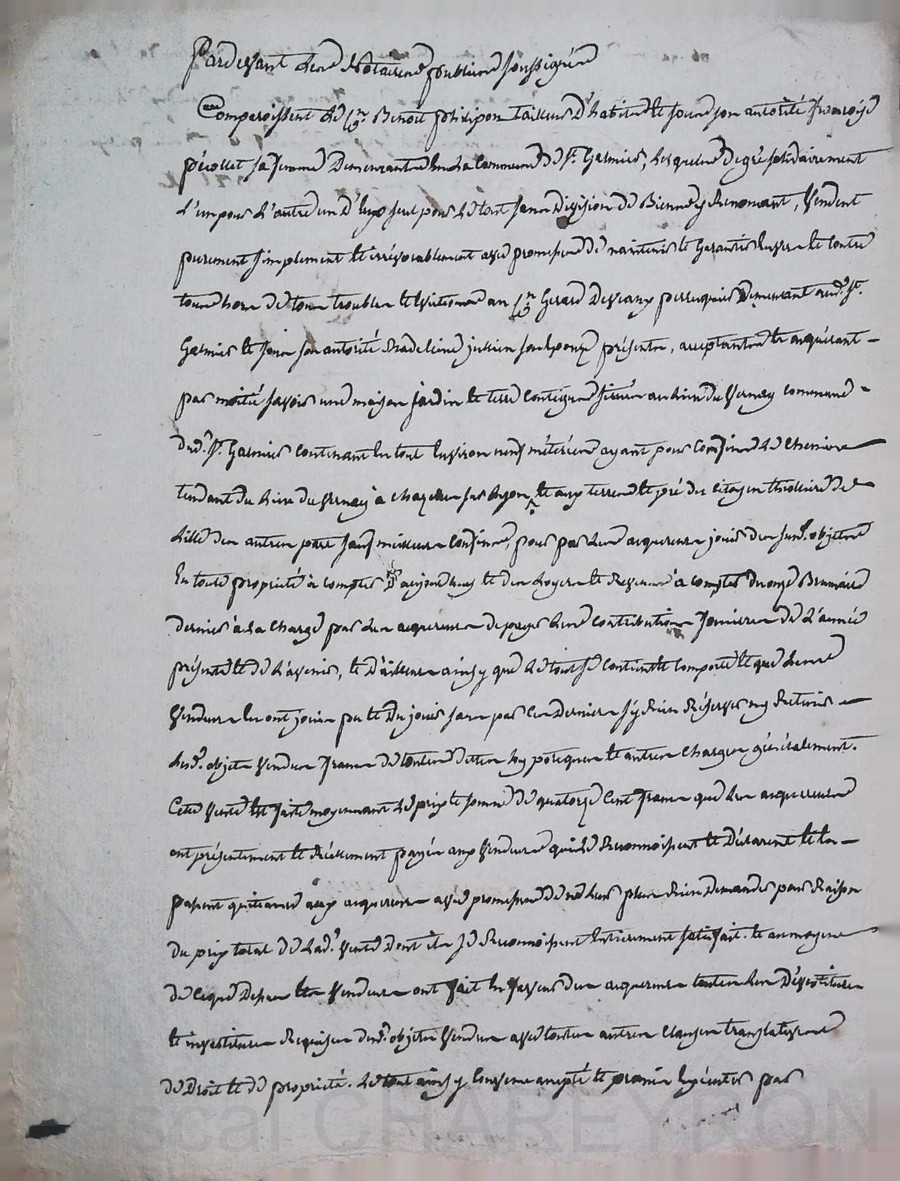 Pardevant les Notaires publics soussignés
Comparoissent le Sr. Benoit philipon tailleur d'habits et sous son autorité françoise
pécollet sa femme demeurants en la Commune de St. Galmier, lesquels de gré solidairement
l'un pour l'autre un d'eux seul pour le tout sans division de biens y renonçant, Vendent
purement simplement et irrévocablement avec promesse de maintenir et Garantir envers et contre
tous hors de tous troubles et évictions au Sr. Gerard Desvaux perruquier demeurant aud. St.
Galmier et sous son autorité Madeleine jullien son épouse présents, acceptants et acquérant
par moitié savoir une maison jardin et terre contigus situés au lieu du Vernay commune
dud. St. Galmier contenant en tout environ neuf métérées ayant pour confins le chemin
tendant du lieu du Vernay à chazelles sur Lyon, et aux terres et pré du citoyen thiolliere de
L'isle des autres parts sauf meilleurs confins, pour par les acquereurs jouir des susd. objets
En toute propriété à compter d'aujourd'huy et des loyers et revenus à compter du onze Brumaire
dernier à la charge par les acquereurs de payer les contributions foncieres de l'année
présente et de l'avenir, et d'ailleurs ainsy que le tout se contient et comporte et que les
Vendeurs en ont joui pu et dû jouir sans par ces derniers s'y rien réserver ny retenir
lesd. objets vendus francs de toutes dettes hypoteques et autres charges généralement.
Cette vente est faite moyennant le prix et somme de quatorze cent francs que les acquereurs
ont présentement et réellement payée aux Vendeurs qui le reconnoissent et déclarent et en
passent quittance aux acquereurs avec promesse de ne leur plus rien demander pour raison
du prix total de lad. vente dont ils se reconnoissent entierement satisfait. et au moyen
de ce que dessus les Vendeurs ont fait en faveur des acquereurs toutes les dévestitures
et investitures requises desd. objets vendus avec toutes autres clauses translatives
de Droit et de propriété. Le tout ainsy convenu accepté et promis exécuter par
Pascal CHAREYRON